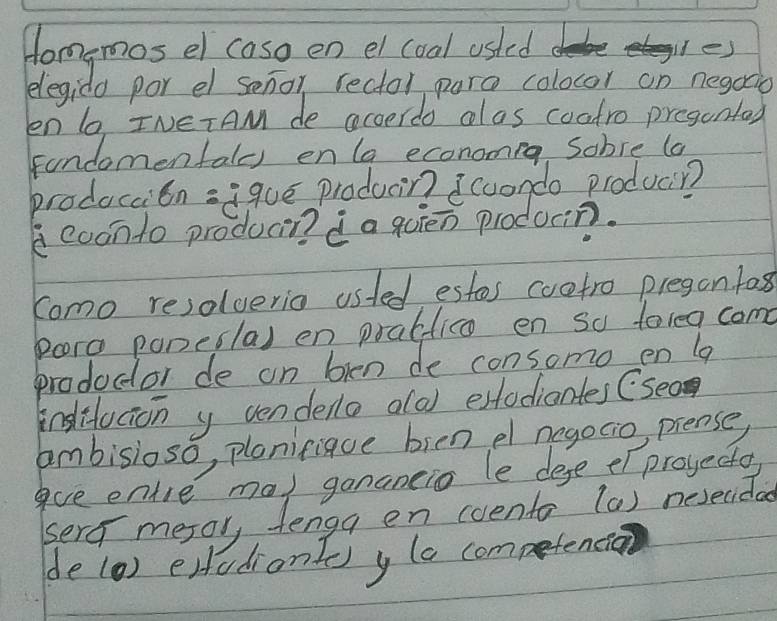 Tomemos el caso en el cual usted es
elegido por el señor rector, para colocar un negocio
en la INETAM de acuerdo a las cuatro preguntas
fundamentales en la economia, sobre la
producción: ¿qué producir? ¿cuando producir?
¿cuánto producir? ¿a quién producir?.
Como resolveria usted estas cuatro preguntas
para ponerlas en practica en su tarea como
productor de un bien de consumo en la
institucion y venderlo a los estudiantes (sea
ambisioso, planifique bien el negocio, piense,
que entre mas ganancia le deje el proyecto,
será mejor, tenga en cuenta las nesecidad
de los estudiantes y la competencia)